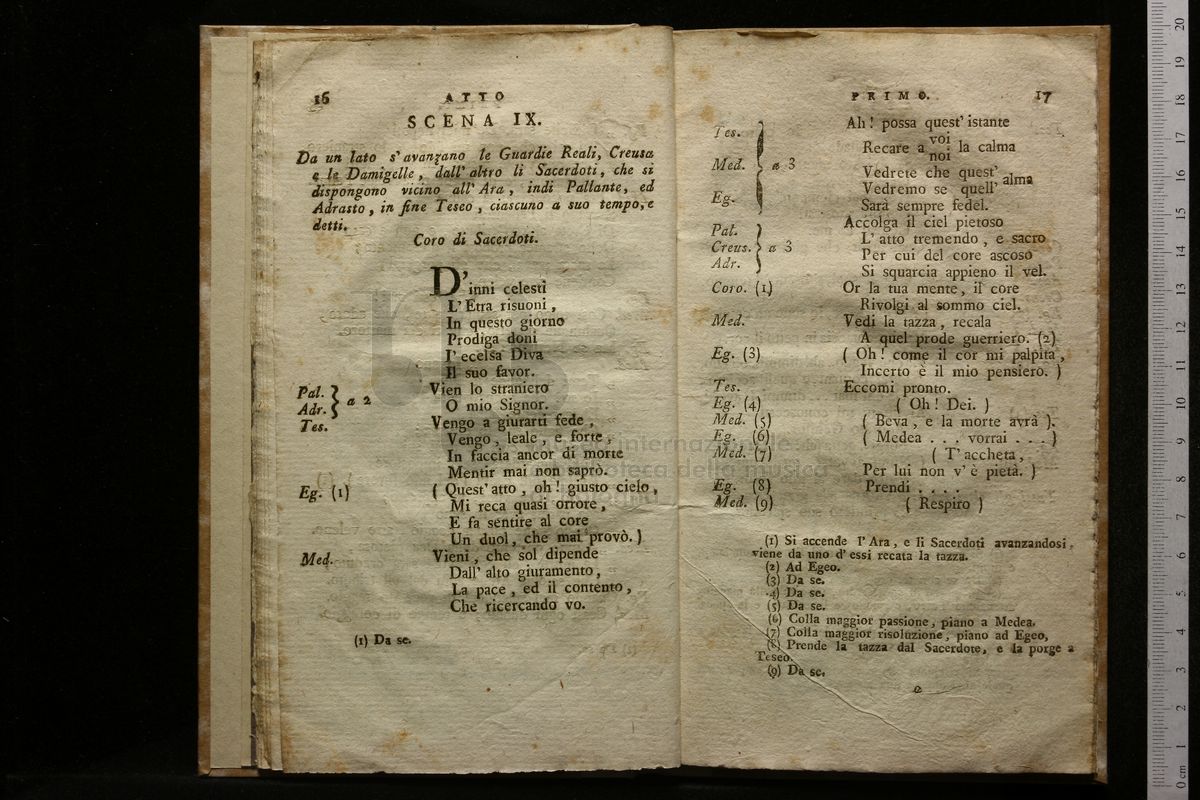 16
ATTO
SCENA IX.
Da un lato s'avanzano le Guardie Reali, Creusa
e le Damigelle, dall'altro li Sacerdoti, che si
dispongono vicino all'Ara, indi Pallante, ed
Adrasto, in fine Teseo, ciascuno a suo tempo, e
detti.
Coro di Sacerdoti.
D'inni celesti
L'Etra risuoni,
In questo giorno
Prodiga doni
L'ecelsa Diva
Il suo favor.
Pal. Adr. a 2 Vien lo straniero
O mio Signor.
Tes. Vengo a giurarti fede,
Vengo, leale, e forte,
In faccia ancor di morte
Mentir mai non saprò.
Eg. (1) ( Quest'atto, oh! giusto cielo,
Mi reca quasi orrore,
E fa sentire al core
Un duol, che mai provò.)
Med. Vieni, che sol dipende
Dall'alto giuramento,
La pace, ed il contento,
Che ricercando vo.
(1) Da se.
PRIMO.
17
Tes. Med. Eg. a 3 Ah! possa quest'istante
Recare a voi noi la calma
Vedrete che quest'
Vedremo se quell' alma
Sarà sempre fedel.
Pal. Creus. Adr. a 3 Accolga il ciel pietoso
L'atto tremendo, e sacro
Per cui del core ascoso
Si squarcia appieno il vel.
Coro. (1) Or la tua mente, il core
Rivolgi al sommo ciel.
Med. Vedi la tazza, recala
A quel prode guerriero. (2)
Eg. (3) ( Oh! come il cor mi palpita,
Incerto è il mio pensiero. )
Tes. Eccomi pronto.
Eg. (4) ( Oh! Dei. )
Med. (5) ( Beva, e la morte avrà ).
Eg. (6) ( Medea . . . vorrai . . . )
Med. (7) ( T'accheta,
Per lui non v'è pietà. )
Eg. (8) Prendi . . . .
Med. (9) ( Respiro )
(1) Si accende l'Ara, e li Sacerdoti avanzandosi,
viene da uno d'essi recata la tazza.
(2) Ad Egeo.
(3) Da se.
(4) Da se.
(5) Da se.
(6) Colla maggior passione, piano a Medea.
(7) Colla maggior risoluzione, piano ad Egeo,
(8) Prende la tazza dal Sacerdote, e la porge a
Teseo.
(9) Da se.